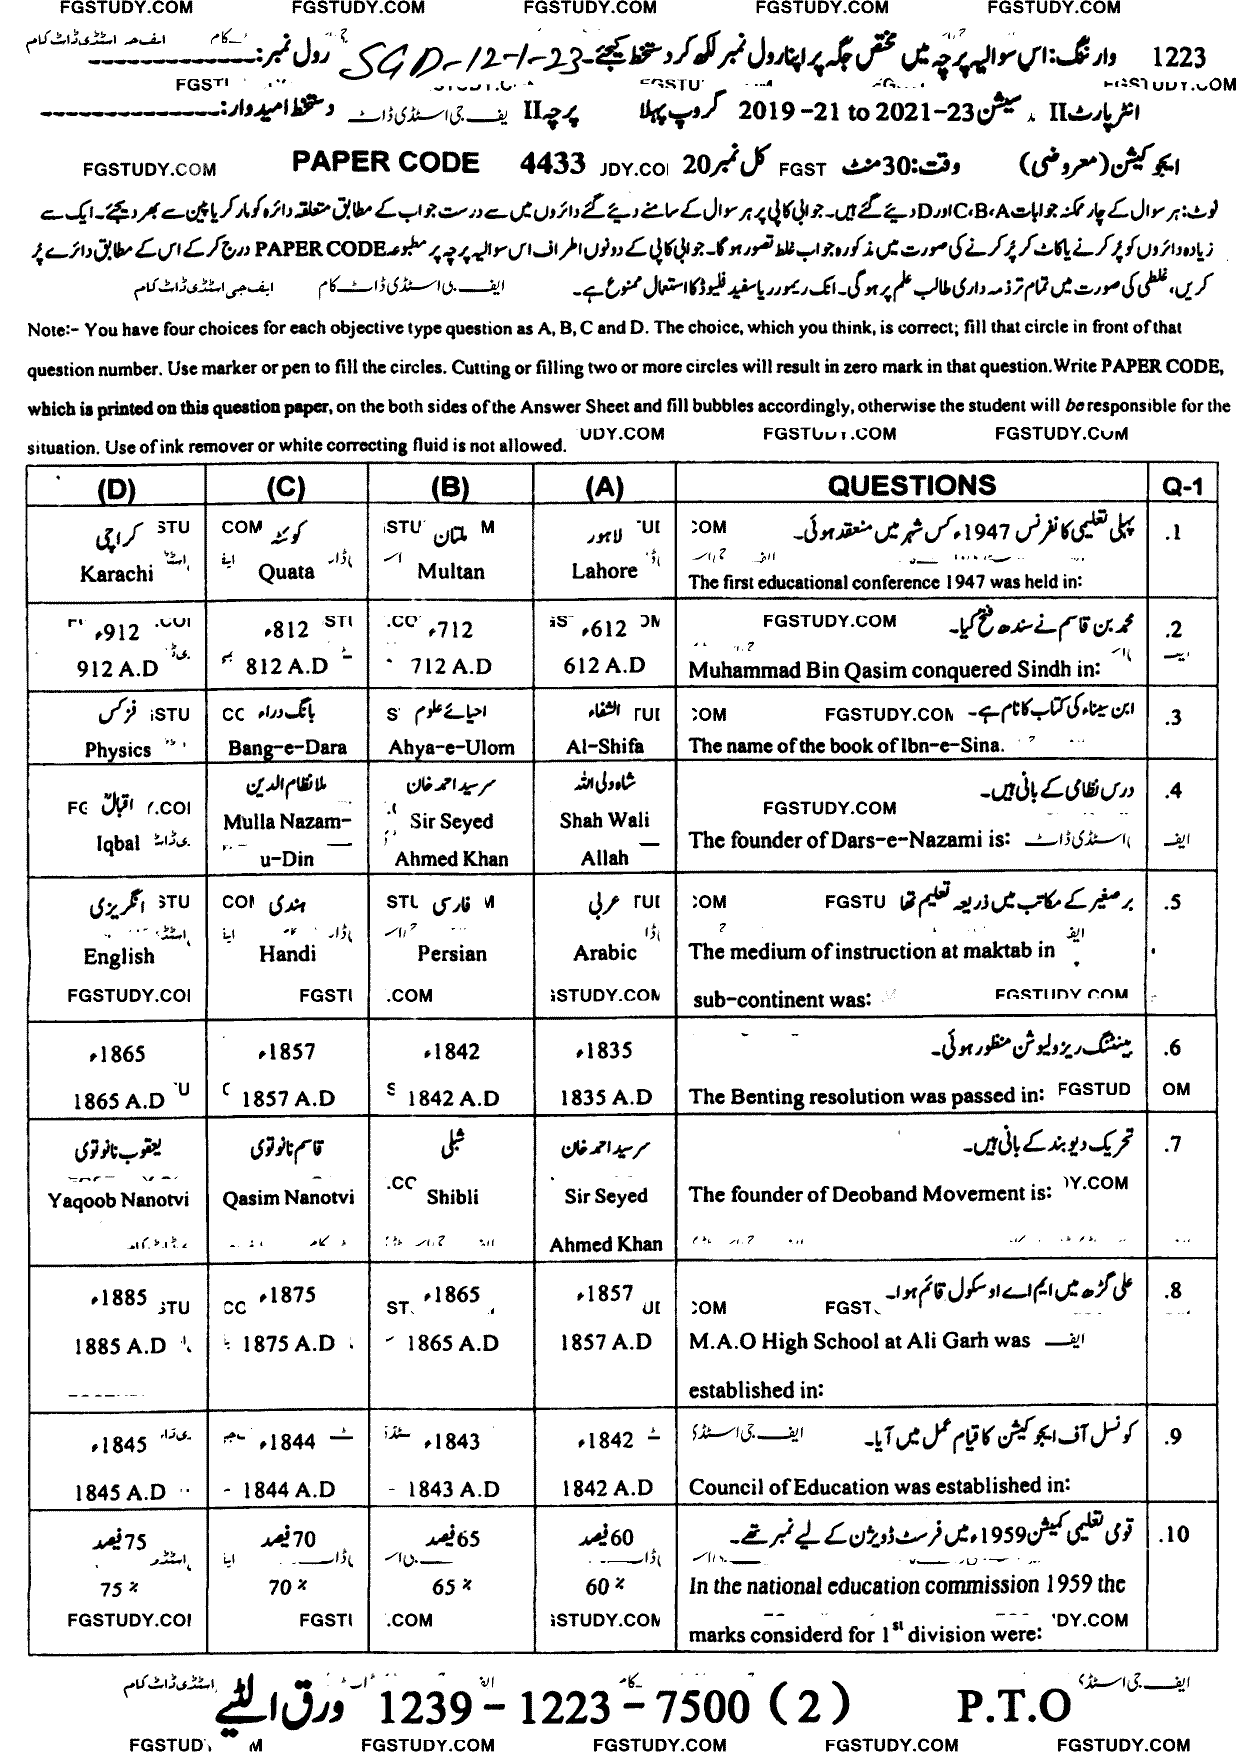 FGSTUDY.COM FGSTUDY.COM FGSTUDY.COM FGSTUDY.COM FGSTUDY.COM
1223 وارننگ: اس سوالیہ پرچہ میں مختص جگہ پر اپنا رول نمبر لکھ کر دستخط کیجئے۔ SGD-12-1-23 رول نمبر:
انٹر پارٹ II سیشن 2021-23 to 2019-21 گروپ پہلا پرچہ II دستخط امیدوار:
ایجوکیشن (معروضی) وقت: 30 منٹ کل نمبر 20 PAPER CODE 4433 FGSTUDY.COM
نوٹ: ہر سوال کے چار ممکنہ جوابات A، B، C اور D دیئے گئے ہیں۔ جوابی کاپی پر ہر سوال کے سامنے دیئے گئے دائروں میں سے درست جواب کے مطابق متعلقہ دائرہ کو مارکر یا پین سے بھر دیجئے۔ ایک سے
زیادہ دائروں کو پُر کرنے یا کاٹ کر پُر کرنے کی صورت میں مذکورہ جواب غلط تصور ہوگا۔ جوابی کاپی کے دونوں اطراف اس سوالیہ پرچہ پر مطبوعہ PAPER CODE درج کر کے اس کے مطابق دائرے پُر
کریں، غلطی کی صورت میں تمام تر ذمہ داری طالب علم پر ہوگی۔ انک ریموور یا سفید فلیوڈ کا استعمال ممنوع ہے۔ ایف جی اسٹڈی ڈاٹ کام
Note:- You have four choices for each objective type question as A, B, C and D. The choice, which you think, is correct; fill that circle in front of that
question number. Use marker or pen to fill the circles. Cutting or filling two or more circles will result in zero mark in that question. Write PAPER CODE,
which is printed on this question paper, on the both sides of the Answer Sheet and fill bubbles accordingly, otherwise the student will be responsible for the
situation. Use of ink remover or white correcting fluid is not allowed.
(D) (C) (B) (A) QUESTIONS Q-1
کراچی کوئٹہ ملتان لاہور پہلی تعلیمی کانفرنس 1947ء کس شہر میں منعقد ہوئی۔ .1
Karachi Quata Multan Lahore The first educational conference 1947 was held in:
912ء 812ء 712ء 612ء محمد بن قاسم نے سندھ فتح کیا۔ .2
912 A.D 812 A.D 712 A.D 612 A.D Muhammad Bin Qasim conquered Sindh in:
فزکس بانگ دراء احیائے علوم الشفاء ابن سیناء کی کتاب کا نام ہے۔ .3
Physics Bang-e-Dara Ahya-e-Ulom Al-Shifa The name of the book of Ibn-e-Sina.
اقبالؒ ملا نظام الدین سرسید احمد خان شاہ ولی اللہ درس نظامی کے بانی ہیں۔ .4
Iqbal Mulla Nazam- Sir Seyed Shah Wali The founder of Dars-e-Nazami is:
u-Din Ahmed Khan Allah
انگریزی ہندی فارسی عربی برصغیر کے مکاتب میں ذریعہ تعلیم تھا .5
English Handi Persian Arabic The medium of instruction at maktab in
sub-continent was:
1865ء 1857ء 1842ء 1835ء بینٹنگ ریزولیوشن منظور ہوئی۔ .6
1865 A.D 1857 A.D 1842 A.D 1835 A.D The Benting resolution was passed in:
یعقوب نانوتوی قاسم نانوتوی شبلی سرسید احمد خان تحریک دیوبند کے بانی ہیں۔ .7
Yaqoob Nanotvi Qasim Nanotvi Shibli Sir Seyed The founder of Deoband Movement is:
Ahmed Khan
1885ء 1875ء 1865ء 1857ء علی گڑھ میں ایم اے او سکول قائم ہوا۔ .8
1885 A.D 1875 A.D 1865 A.D 1857 A.D M.A.O High School at Ali Garh was
established in:
1845ء 1844ء 1843ء 1842ء کونسل آف ایجوکیشن کا قیام عمل میں آیا۔ .9
1845 A.D 1844 A.D 1843 A.D 1842 A.D Council of Education was established in:
75 فیصد 70 فیصد 65 فیصد 60 فیصد قومی تعلیمی کمیشن 1959ء میں فرسٹ ڈویژن کے لیے نمبر تھے۔ .10
75 % 70 % 65 % 60 % In the national education commission 1959 the
marks considerd for 1st division were:
ورق الٹیے 1239 - 1223 - 7500 (2) P.T.O
FGSTUDY.COM FGSTUDY.COM FGSTUDY.COM FGSTUDY.COM